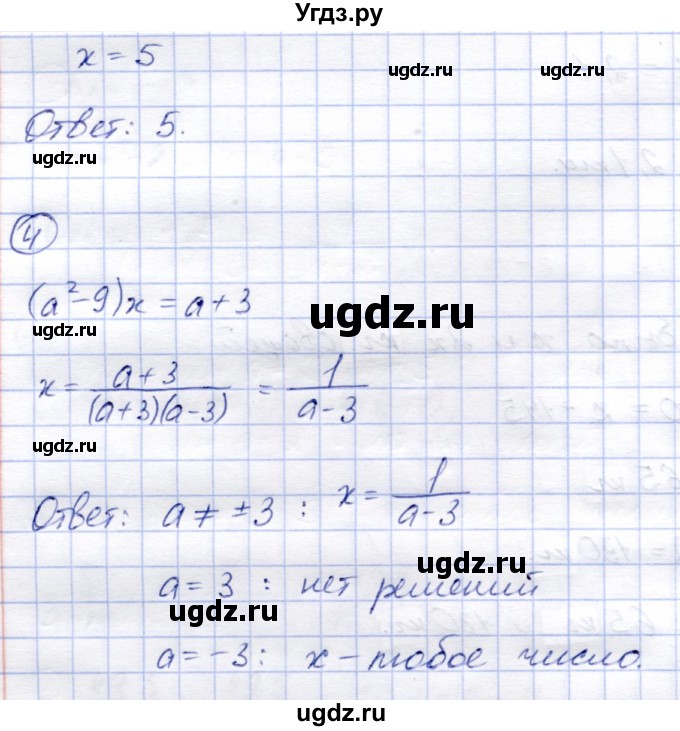 Угдз.ру
x = 5
ugdz.ru ugdz.ru
Ответ: 5.
ugdz.ru
4
(a²-9)x = a+3
ugdz.ru
ugdz.ru
x = (a+3)/((a+3)(a-3)) = 1/(a-3)
ugdz.ru
Ответ: a ≠ ±3 : x = 1/(a-3)
ugdz.ru
a = 3 : нет решений
ugdz.ru
a = -3: x - любое число.
ugdz.ru
ugdz.ru